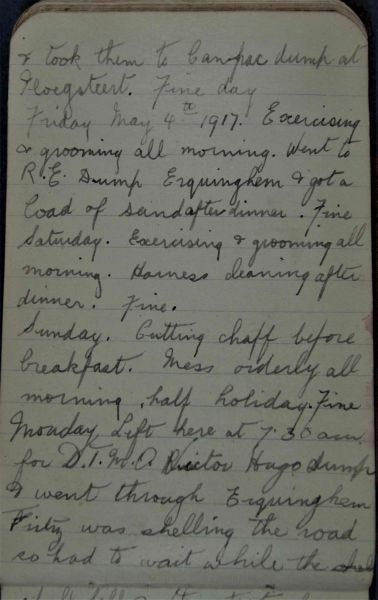 & took them to Canpac dump at
Ploegsteert. Fine day
Friday May 4th 1917. Exercising
& grooming all morning. Went to
R.E. Dump Erquinghem & got a
load of sand after dinner. Fine
Saturday. Exercising & grooming all
morning. Harness cleaning after
dinner. Fine.
Sunday. Cutting chaff before
breakfast. Mess orderly all
morning, half holiday. Fine
Monday Left here at 7.30 am
for D.I.M.O. Victor Hugo dump
& went through Erquinghem
Fritz was shelling the road
so had to wait while the